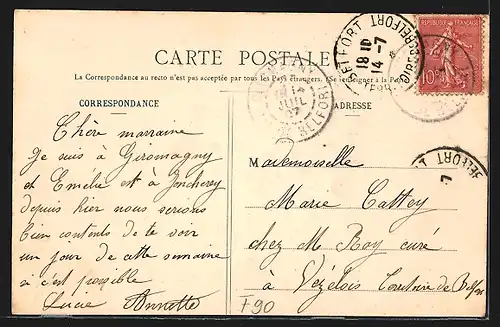 CARTE POSTALE
La Correspondance au recto n'est pas acceptée par tous les Pays étrangers. (Se renseigner à la Poste)
CORRESPONDANCE
ADRESSE
REPUBLIQUE FRANÇAISE
10c
BELFORT
18 10
14 -7
TERR. DE BELFORT
14
JUIL
07
BELFORT
BELFORT
Chère marraine
Je suis à Giromagny
et Emilie est à Joncherey
depuis hier nous serions
bien contents de te voir
un jour de cette semaine
si c'est possible
Lucie Annette
Mademoiselle
Marie Cattey
chez M Roy curé
à Vézelois Territoire de Belfort
790